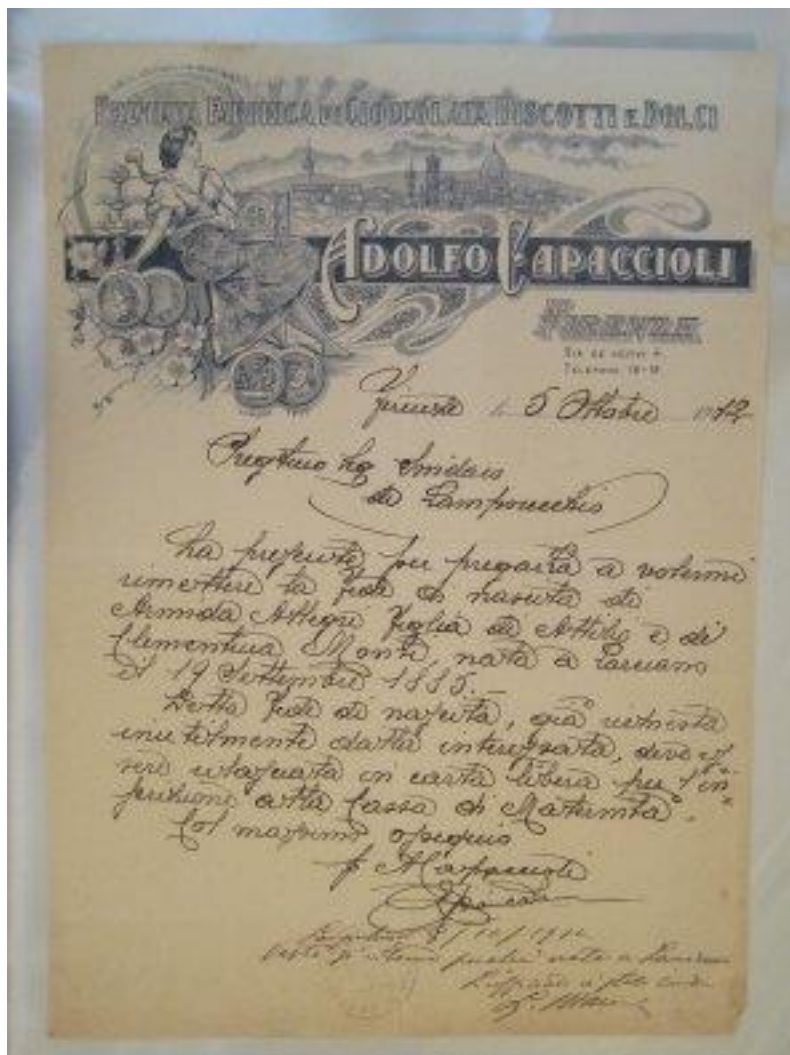 PREMIATA FABBRICA DI CIOCCOLATA BISCOTTI E DOLCI
ADOLFO CAPACCIOLI
FIRENZE
Telefono
Firenze li 5 Ottobre 1912
Sindaco
di Lamporecchio
La presente per pregarla a volermi
rimettere la fede di nascita di
Armida Allegri figlia di Attilio e di
Clementina Monti, nata a Larciano
il 19 Settembre 1885.—
Detta fede di nascita, già richiesta
inutilmente dalla interessata, deve es=
sere rilasciata in carta libera per l'in=
scrizione alla Cassa di Maternità.
Col massimo ossequio
p. A Capaccioli
/10/1912
nata a
L'